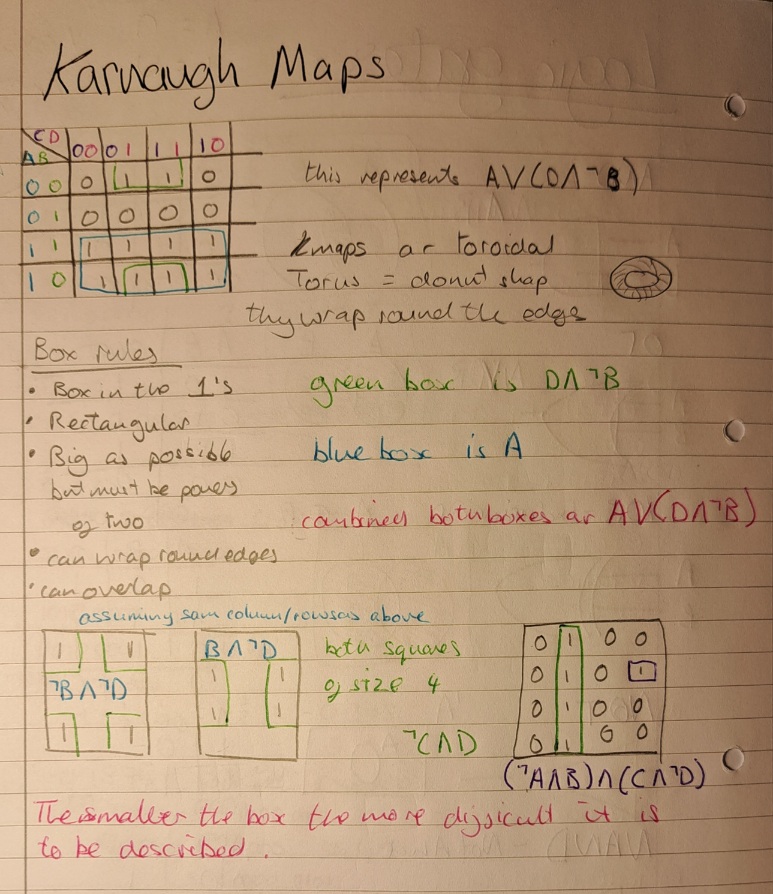 Karnaugh Maps
CD 00 01 11 10
AB
00 0 1 1 0
01 0 0 0 0
11 1 1 1 1
10 1 1 1 1
this represents A∨(D∧¬B)
kmaps ar toroidal
Torus = donut shap
thy wrap round the edge
Box rules
• Box in the 1's
• Rectangular
• Big as possible
but must be powers
of two
• can wrap round edges
• can overlap
green box is D∧¬B
blue box is A
combined both boxes ar A∨(D∧¬B)
assuming sam column/rows as above
1 1
¬B∧¬D
1 1
B∧¬D
1 1
1 1
both squares
of size 4
¬C∧D
0 1 0 0
0 1 0 1
0 1 0 0
0 1 0 0
(¬A∧B)∧(C∧¬D)
The smaller the box the more difficult it is
to be described.